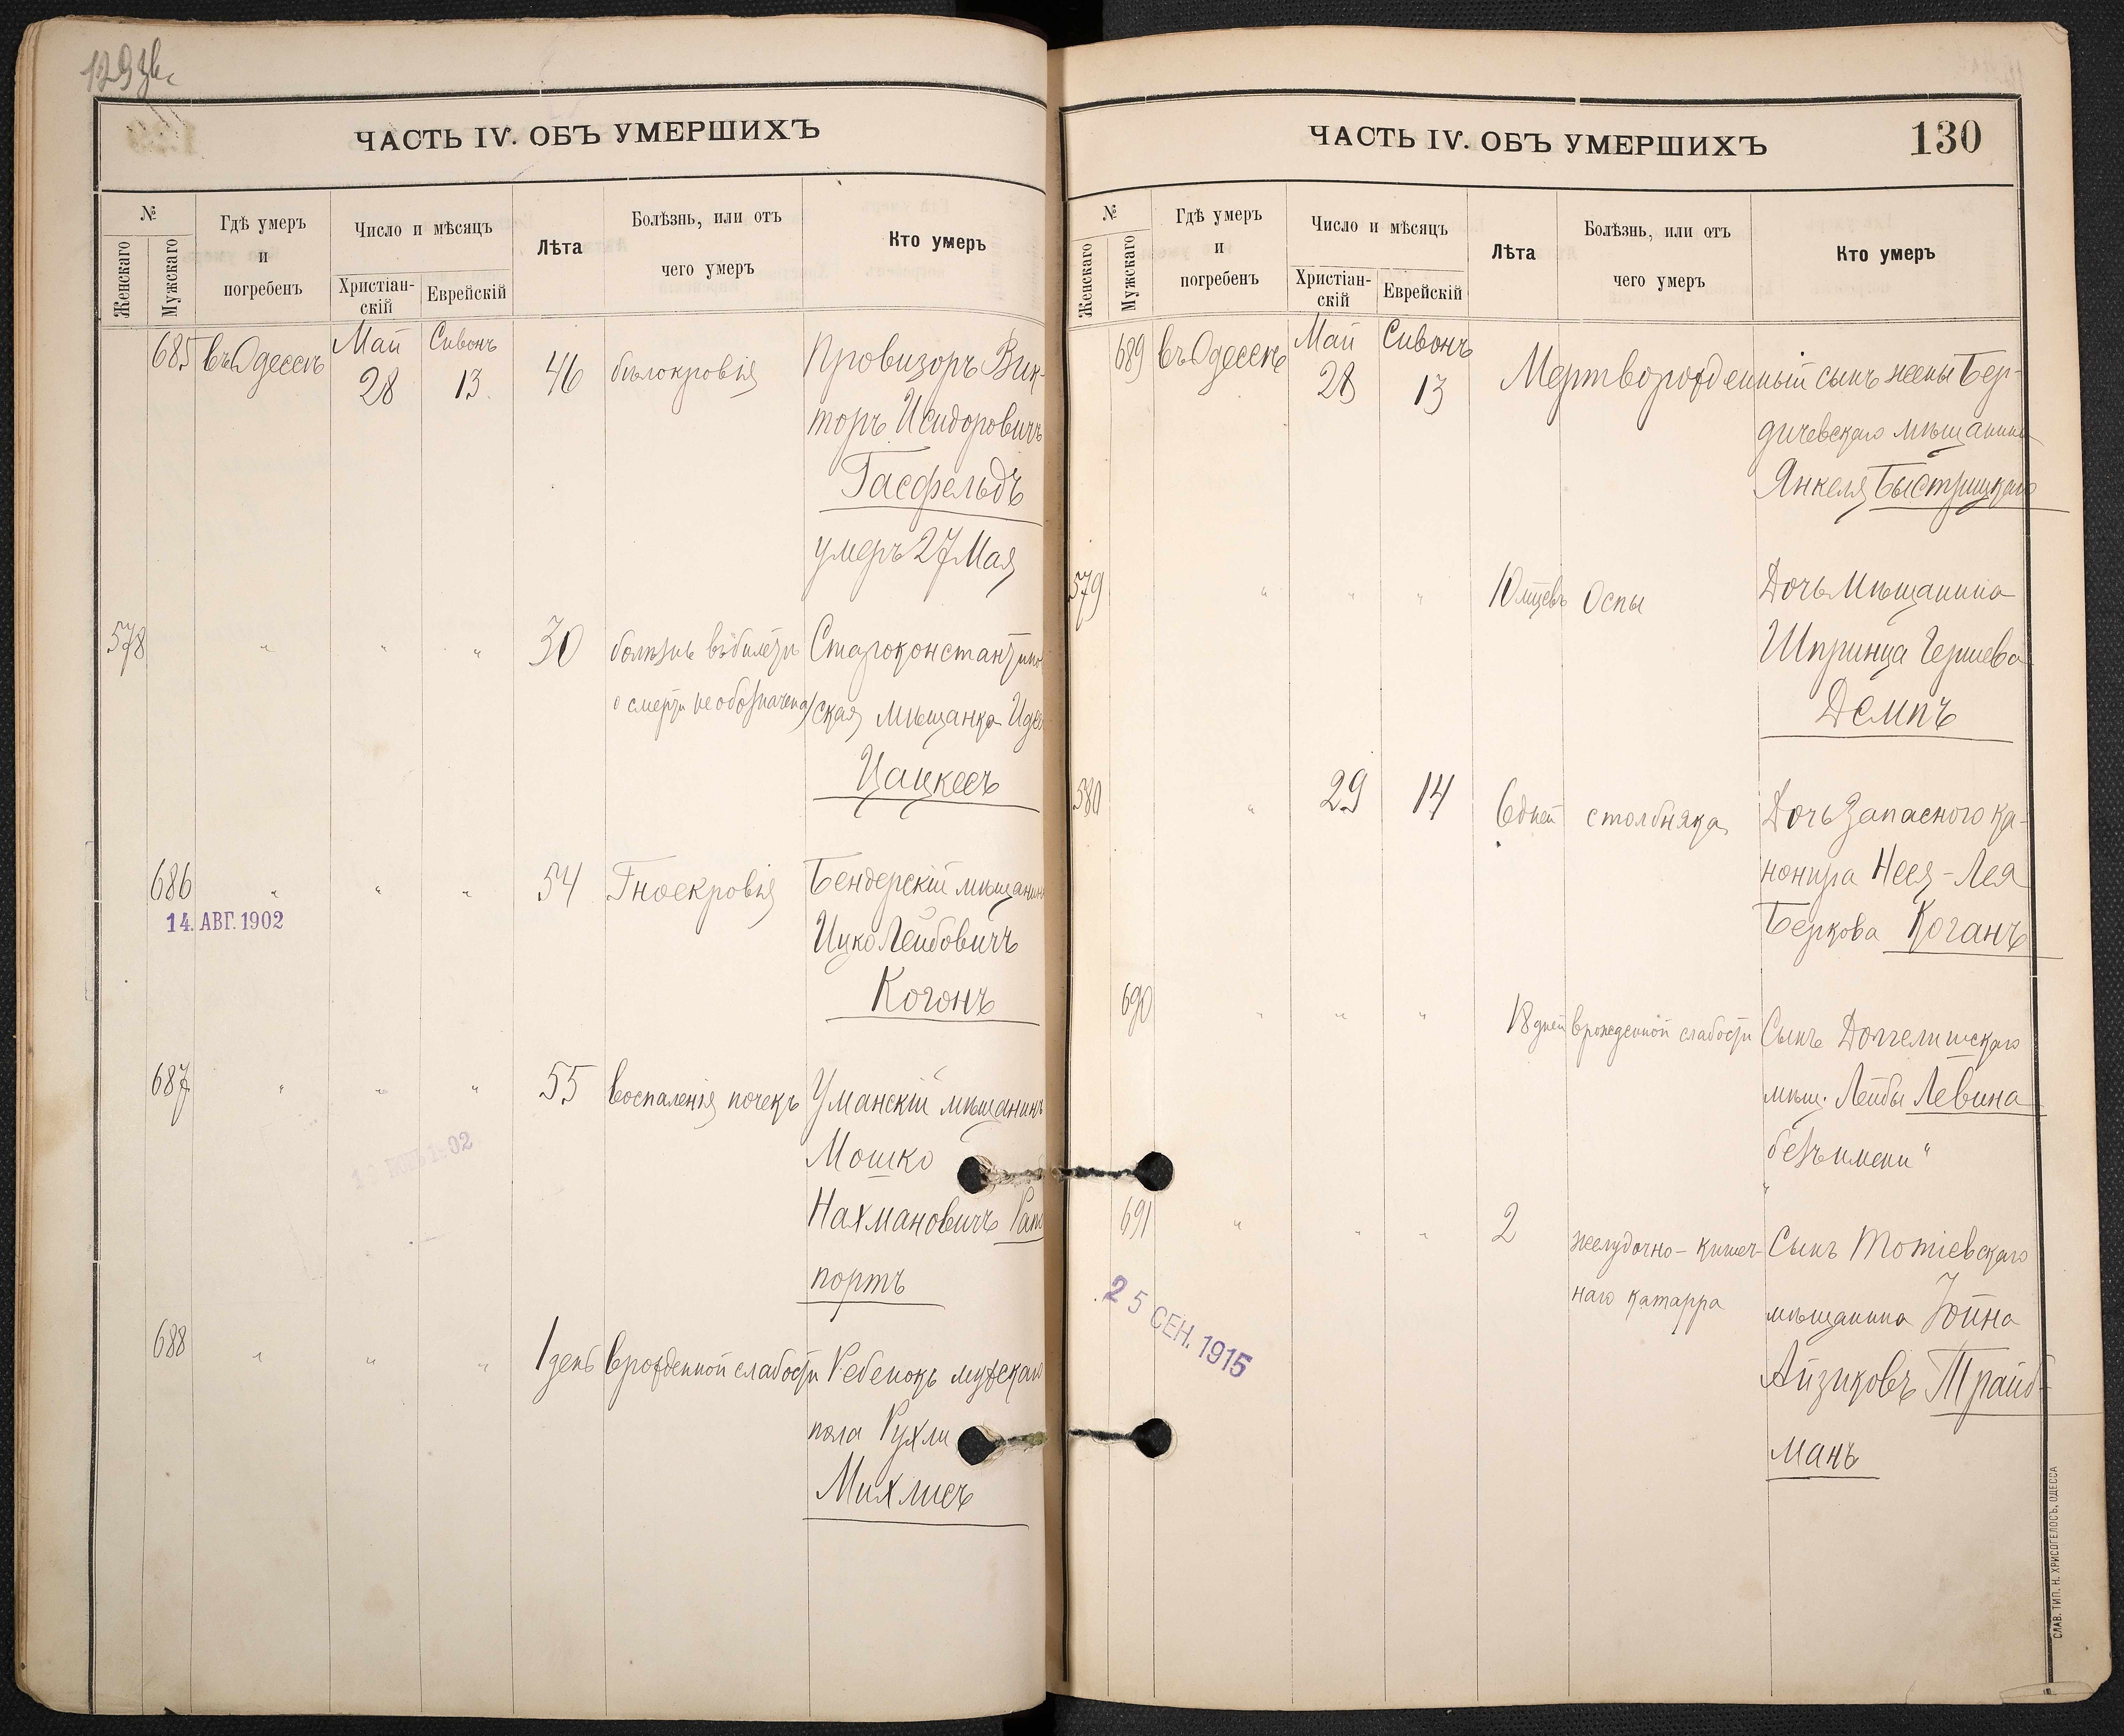 129 зв.
ЧАСТЬ IV. ОБЪ УМЕРШИХЪ
№
Женскаго
Мужскаго
Гдѣ умеръ
и
погребенъ
Число и мѣсяцъ
Христіан-
скій
Еврейскій
Лѣта
Болѣзнь, или отъ
чего умеръ
Кто умеръ
685 въ Одессѣ Май 28 Сивонъ 13 46 бѣлокровія Провизоръ Вик-
торъ Исидоровичъ
Гасфельдъ
умеръ 27 Мая
578 " " " 30 болѣзнь въ билетѣ Староконстантинов
о смерти не обозначена) ская мѣщанка
Цацкесъ
686 " " " 54 Гноекровія Бендерскій мѣщанинъ
14. АВГ. 1902
Ицко Лейбовичъ
Когонъ
687 " " " 55 воспаленія почекъ Уманскій мѣщанинъ
Мошко
Нахмановичъ Рапо
портъ
688 " " " 1 день врожденной слабости Ребенокъ мужскаго
пола Рухли
Михлисъ
ЧАСТЬ IV. ОБЪ УМЕРШИХЪ
130
№
Женскаго
Мужскаго
Гдѣ умеръ
и
погребенъ
Число и мѣсяцъ
Христіан-
скій
Еврейскій
Лѣта
Болѣзнь, или отъ
чего умеръ
Кто умеръ
689 въ Одессѣ Май 28 Сивонъ 13 Мертворожденный сынъ жены Бер-
дичевскаго мѣщанина
Янкеля Быстрицкаго
579 " " " 10 мѣсевъ Оспы Дочь мѣщанина
Шпринца Гершева
Демпъ
580 " 29 14 6 дней столбняка Дочь запаснаго ка-
нонира Неся-Лея
Беркова Коганъ
690 " " " 18 дней врожденной слабости Сынъ Долгелишскаго
мѣщ. Лейбы Левина
безъ имени"
691 " " " 2 желудочно-кишеч- Сынъ Тотіевскаго
наго катарра мѣщанина Іойна
25 СЕН. 1915
Айзиковъ Трайб-
манъ
СЛАВ. ТИП. Н. ХРИСОГЕЛОСЪ, ОДЕССА